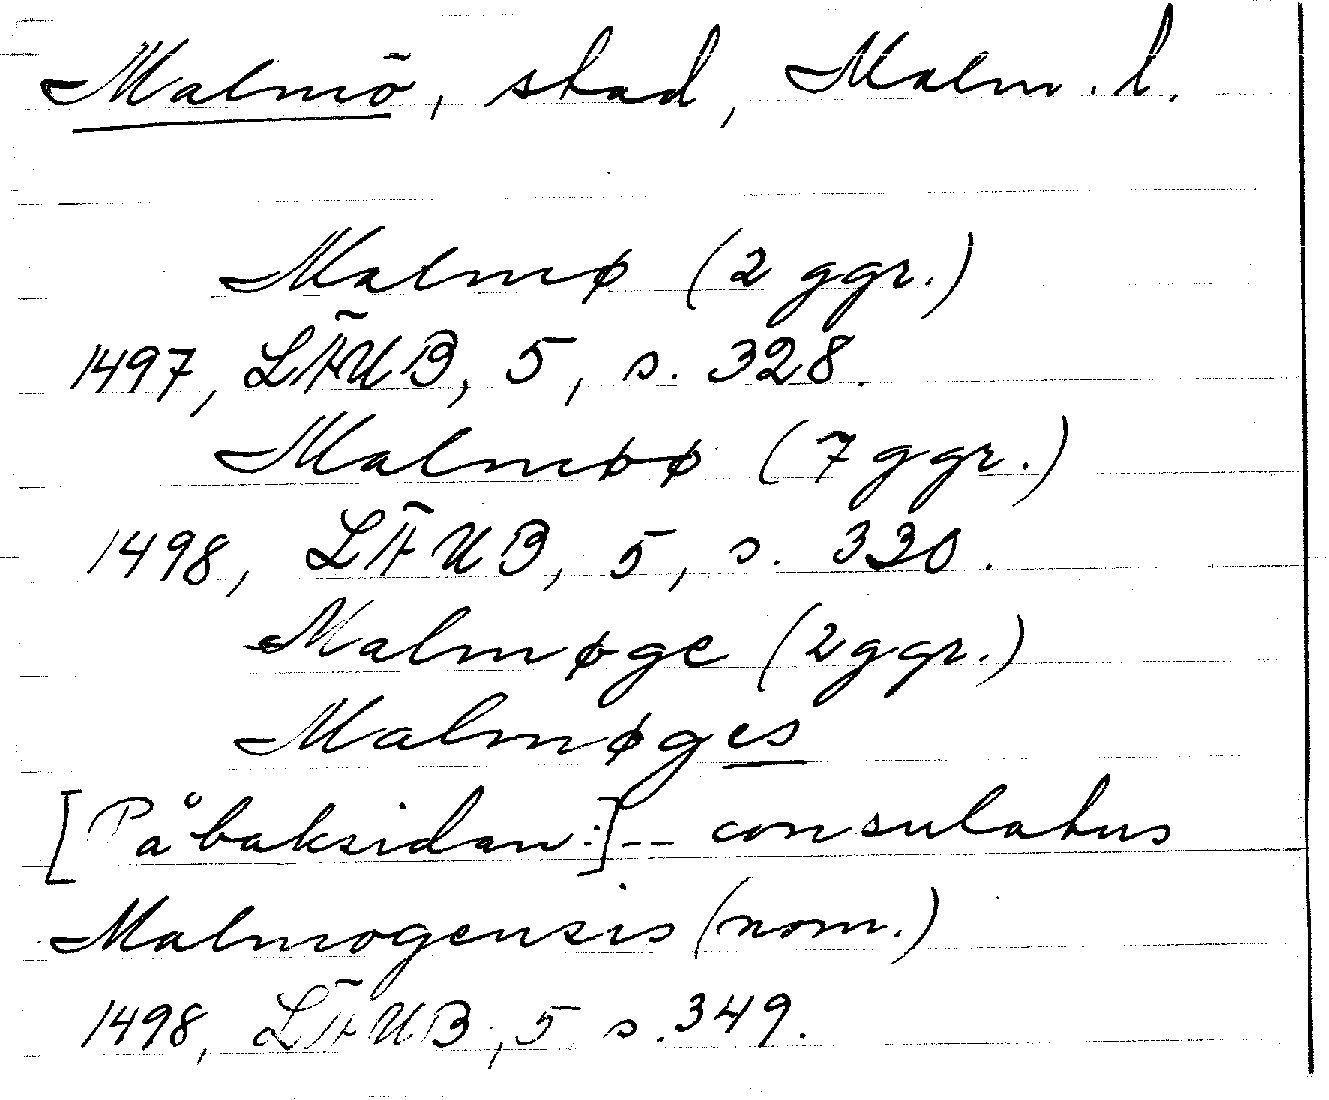 Malmö, stad, Malm. l.
Malmø (2 ggr.)
1497, LÄUB, 5, s. 328.
Malmøø (7 ggr.)
1498, LÄUB, 5, s. 330.
Malmøge (2 ggr.)
Malmøges
[På baksidan:] -- consulatus
Malmogensis (nom.)
1498, LÄUB, 5 s. 349.